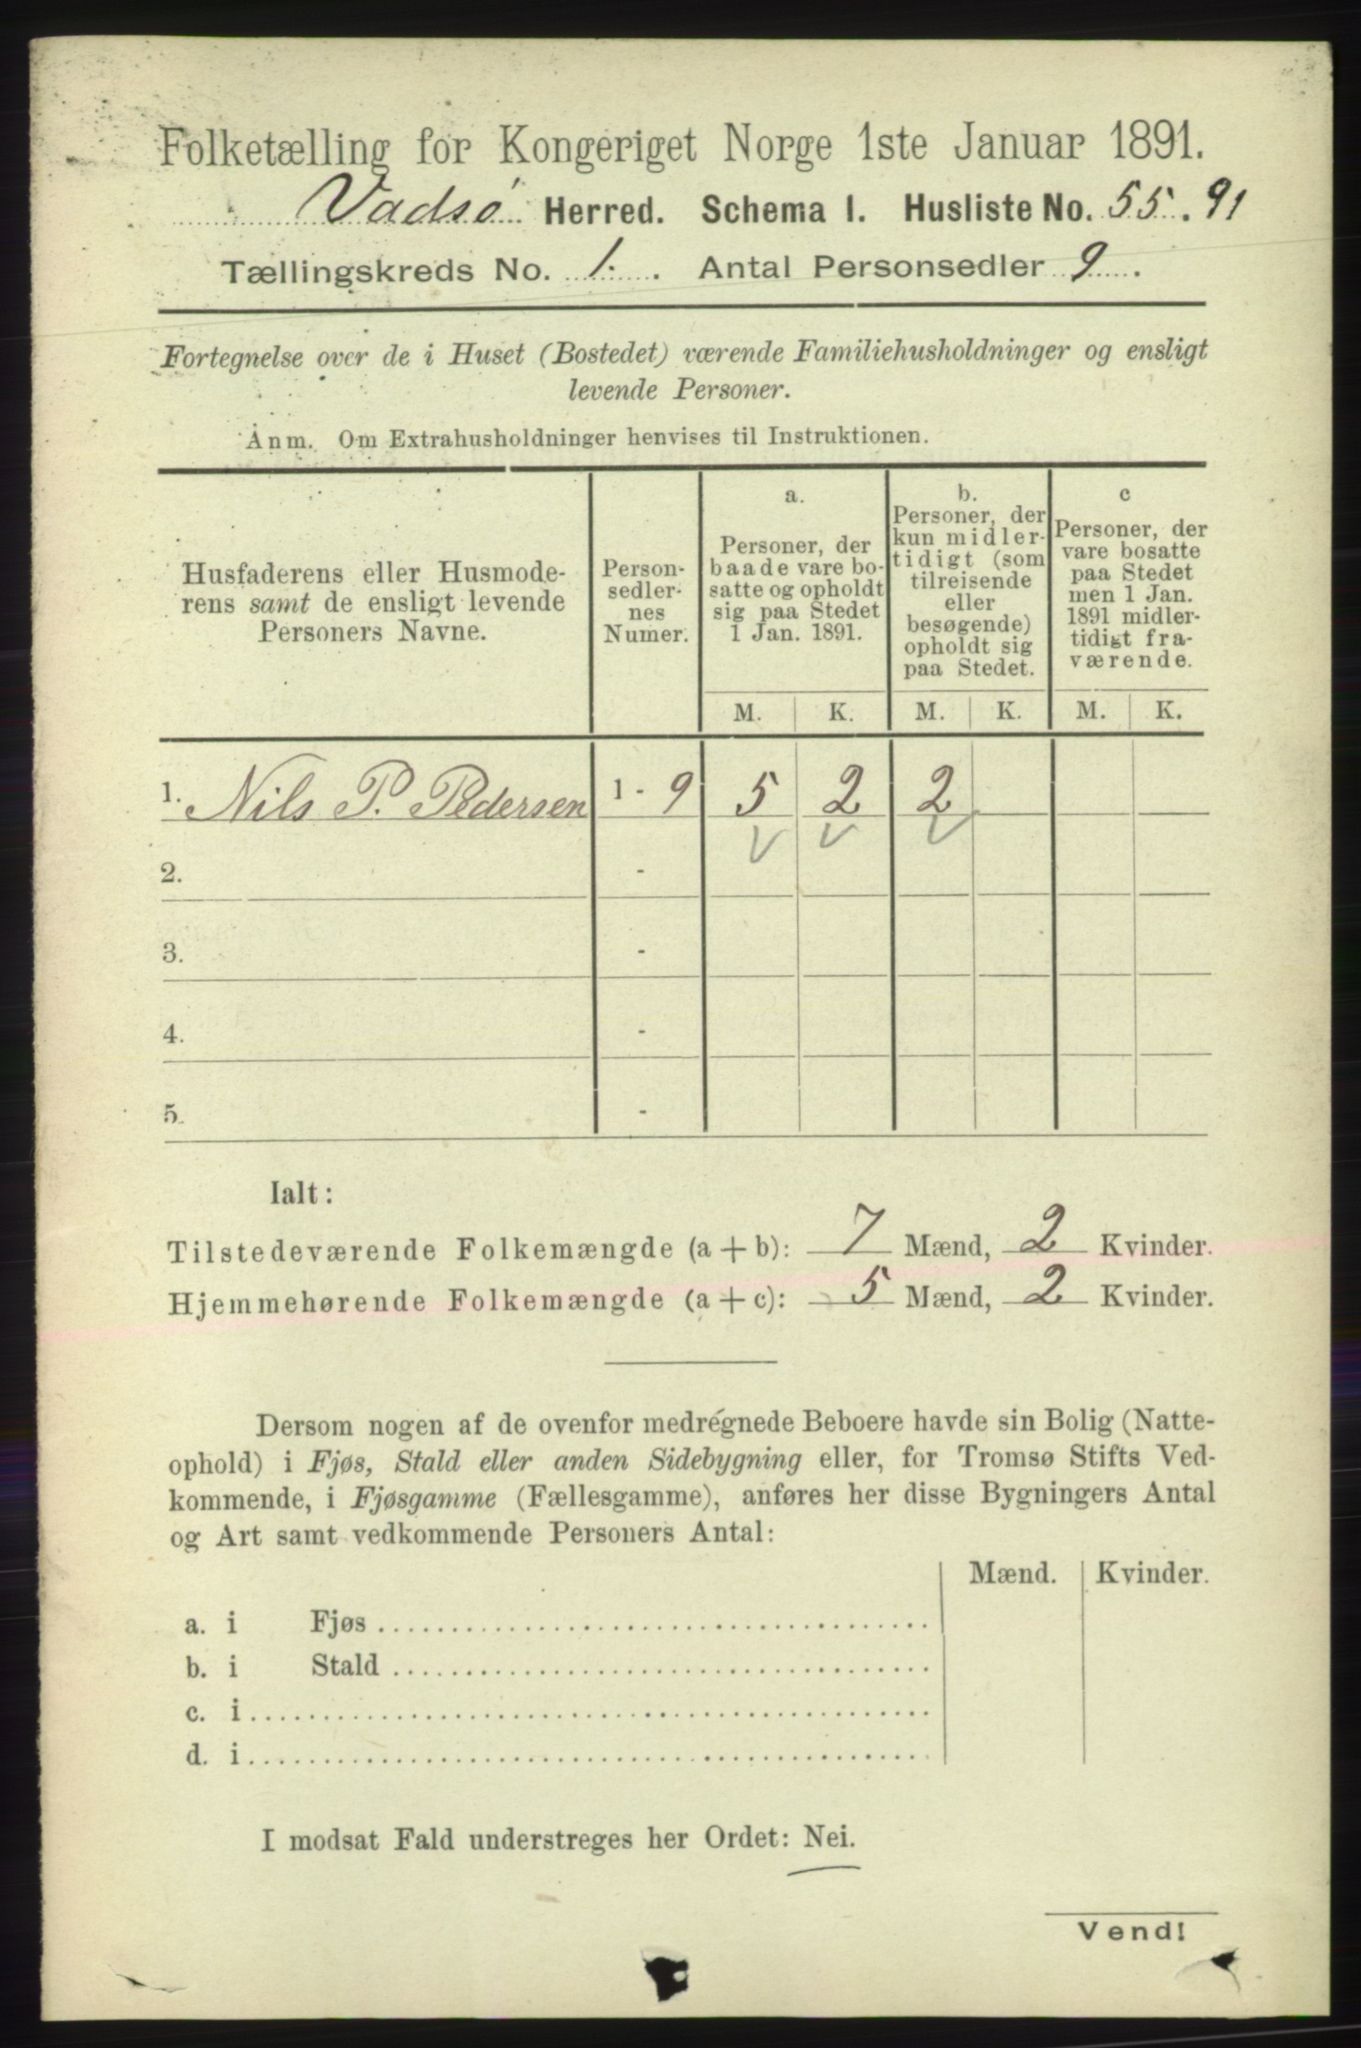 Folketælling for Kongeriget Norge 1ste Januar 1891.
Vadsø Herred. Schema I. Husliste No. 55. 91
Tællingskreds No. 1. Antal Personsedler 9.
Fortegnelse over de i Huset (Bostedet) værende Familiehusholdninger og ensligt
levende Personer.
Anm. Om Extrahusholdninger henvises til Instruktionen.
Husfaderens eller Husmode-
rens samt de ensligt levende
Personers Navne.
Person-
sedler-
nes
Numer.
a.
Personer, der
baade vare bo-
satte og opholdt
sig paa Stedet
1 Jan. 1891.
b.
Personer, der
kun midler-
tidigt (som
tilreisende
eller
besøgende)
opholdt sig
paa Stedet.
c
Personer, der
vare bosatte
paa Stedet
men 1 Jan.
1891 midler-
tidigt fra-
værende.
M. K. M. K. M. K.
1. Nils P. Pedersen 1 - 9 5 2 2
2. -
3. -
4. -
5. -
Ialt:
Tilstedeværende Folkemængde (a + b): 7 Mænd, 2 Kvinder.
Hjemmehørende Folkemængde (a + c): 5 Mænd, 2 Kvinder.
Dersom nogen af de ovenfor medregnede Beboere havde sin Bolig (Natte-
ophold) i Fjøs, Stald eller anden Sidebygning eller, for Tromsø Stifts Ved-
kommende, i Fjøsgamme (Fællesgamme), anføres her disse Bygningers Antal
og Art samt vedkommende Personers Antal:
Mænd. Kvinder.
a. i Fjøs
b. i Stald
c. i
d. i
I modsat Fald understreges her Ordet: Nei.
Vend!